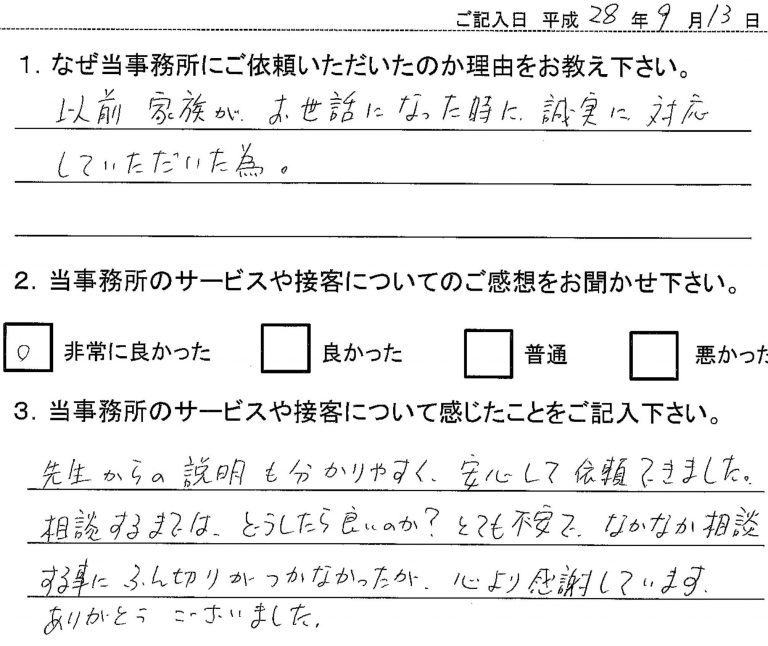 ご記入日 平成 28 年 9 月 13 日
1. なぜ当事務所にご依頼いただいたのか理由をお教え下さい。
以前 家族が、お世話になった時に、誠実に 対応
していただいた為。
2. 当事務所のサービスや接客についてのご感想をお聞かせ下さい。
○ 非常に良かった 良かった 普通 悪かった
3. 当事務所のサービスや接客について感じたことをご記入下さい。
先生からの 説明も分かりやすく、安心して依頼できました。
相談するまでは、どうしたら良いのか?とても不安で、なかなか相談
する事に ふん切りがつかなかったが、心より感謝しています。
ありがとう ございました。